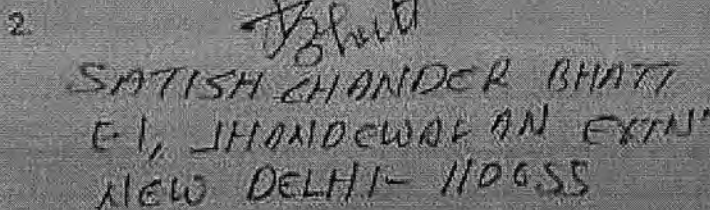 2.
SATISH CHANDER BHATI
E-1, JHANDEWALAN EXTN'
NEW DELHI- 110055